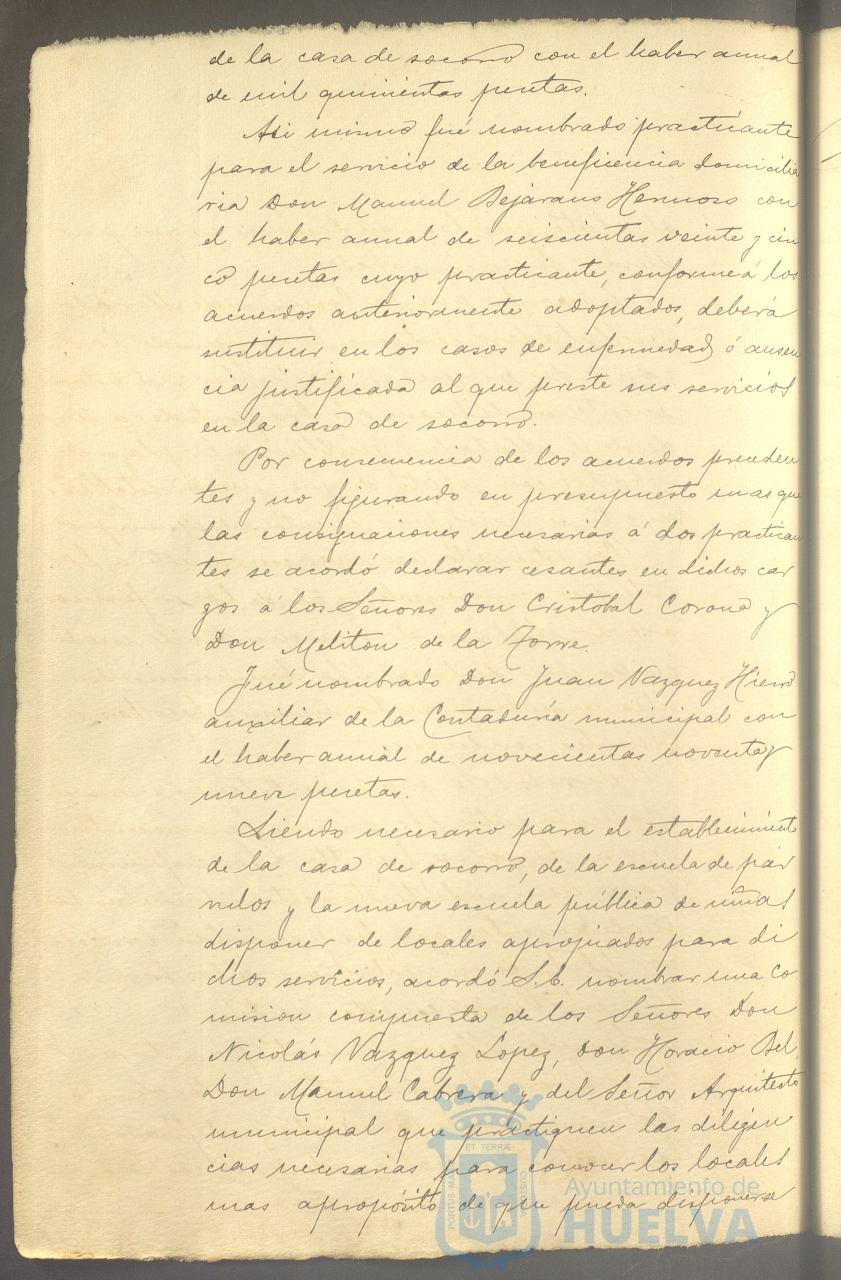 de la casa de socorro con el haber annual
de mil quinientas pesetas.
Asi mismo fué nombrado practicante
para el servicio de la beneficencia domicilia
ria Don Manuel Bejarano Hermoso con
el haber annal de seiscientas veinte y cin
co pesetas cuyo practicante, conforme á los
acuerdos anteriormente adoptados, deberá
sustituir en los casos de enfermedad ó ausen
cia justificada al que preste sus servicios
en la casa de socorro.
Por consecuencia de los acuerdos preceden
tes y no figurando en presupuesto mas que
las consignaciones necesarias á dos practican
tes se acordó declarar cesantes en dichos car
gos á los Señores Don Cristobal Corona y
Don Meliton de la Torre.
Fué nombrado Don Juan Vazquez Hierro
auxiliar de la Contaduría municipal con
el haber annal de novecientas noventa y
nueve pesetas.
Siendo necesario para el establecimiento
de la casa de socorro, de la escuela de pár
vulos y la nueva escuela pública de niñas
disponer de locales apropiados para di
chos servicios, acordó S.C. nombrar una Co
mision compuesta de los Señores Don
Nicolás Vazquez Lopez, Don Horacio Bel,
Don Manuel Cabrera y del Señor Arquitecto
municipal que practiquen las diligen
cias necesarias para conocer los locales
mas apropósito de que pueda disponerse
ET TERRÆ
PORTUS MARIS
CUSTODIA
Ayuntamiento de
HUELVA